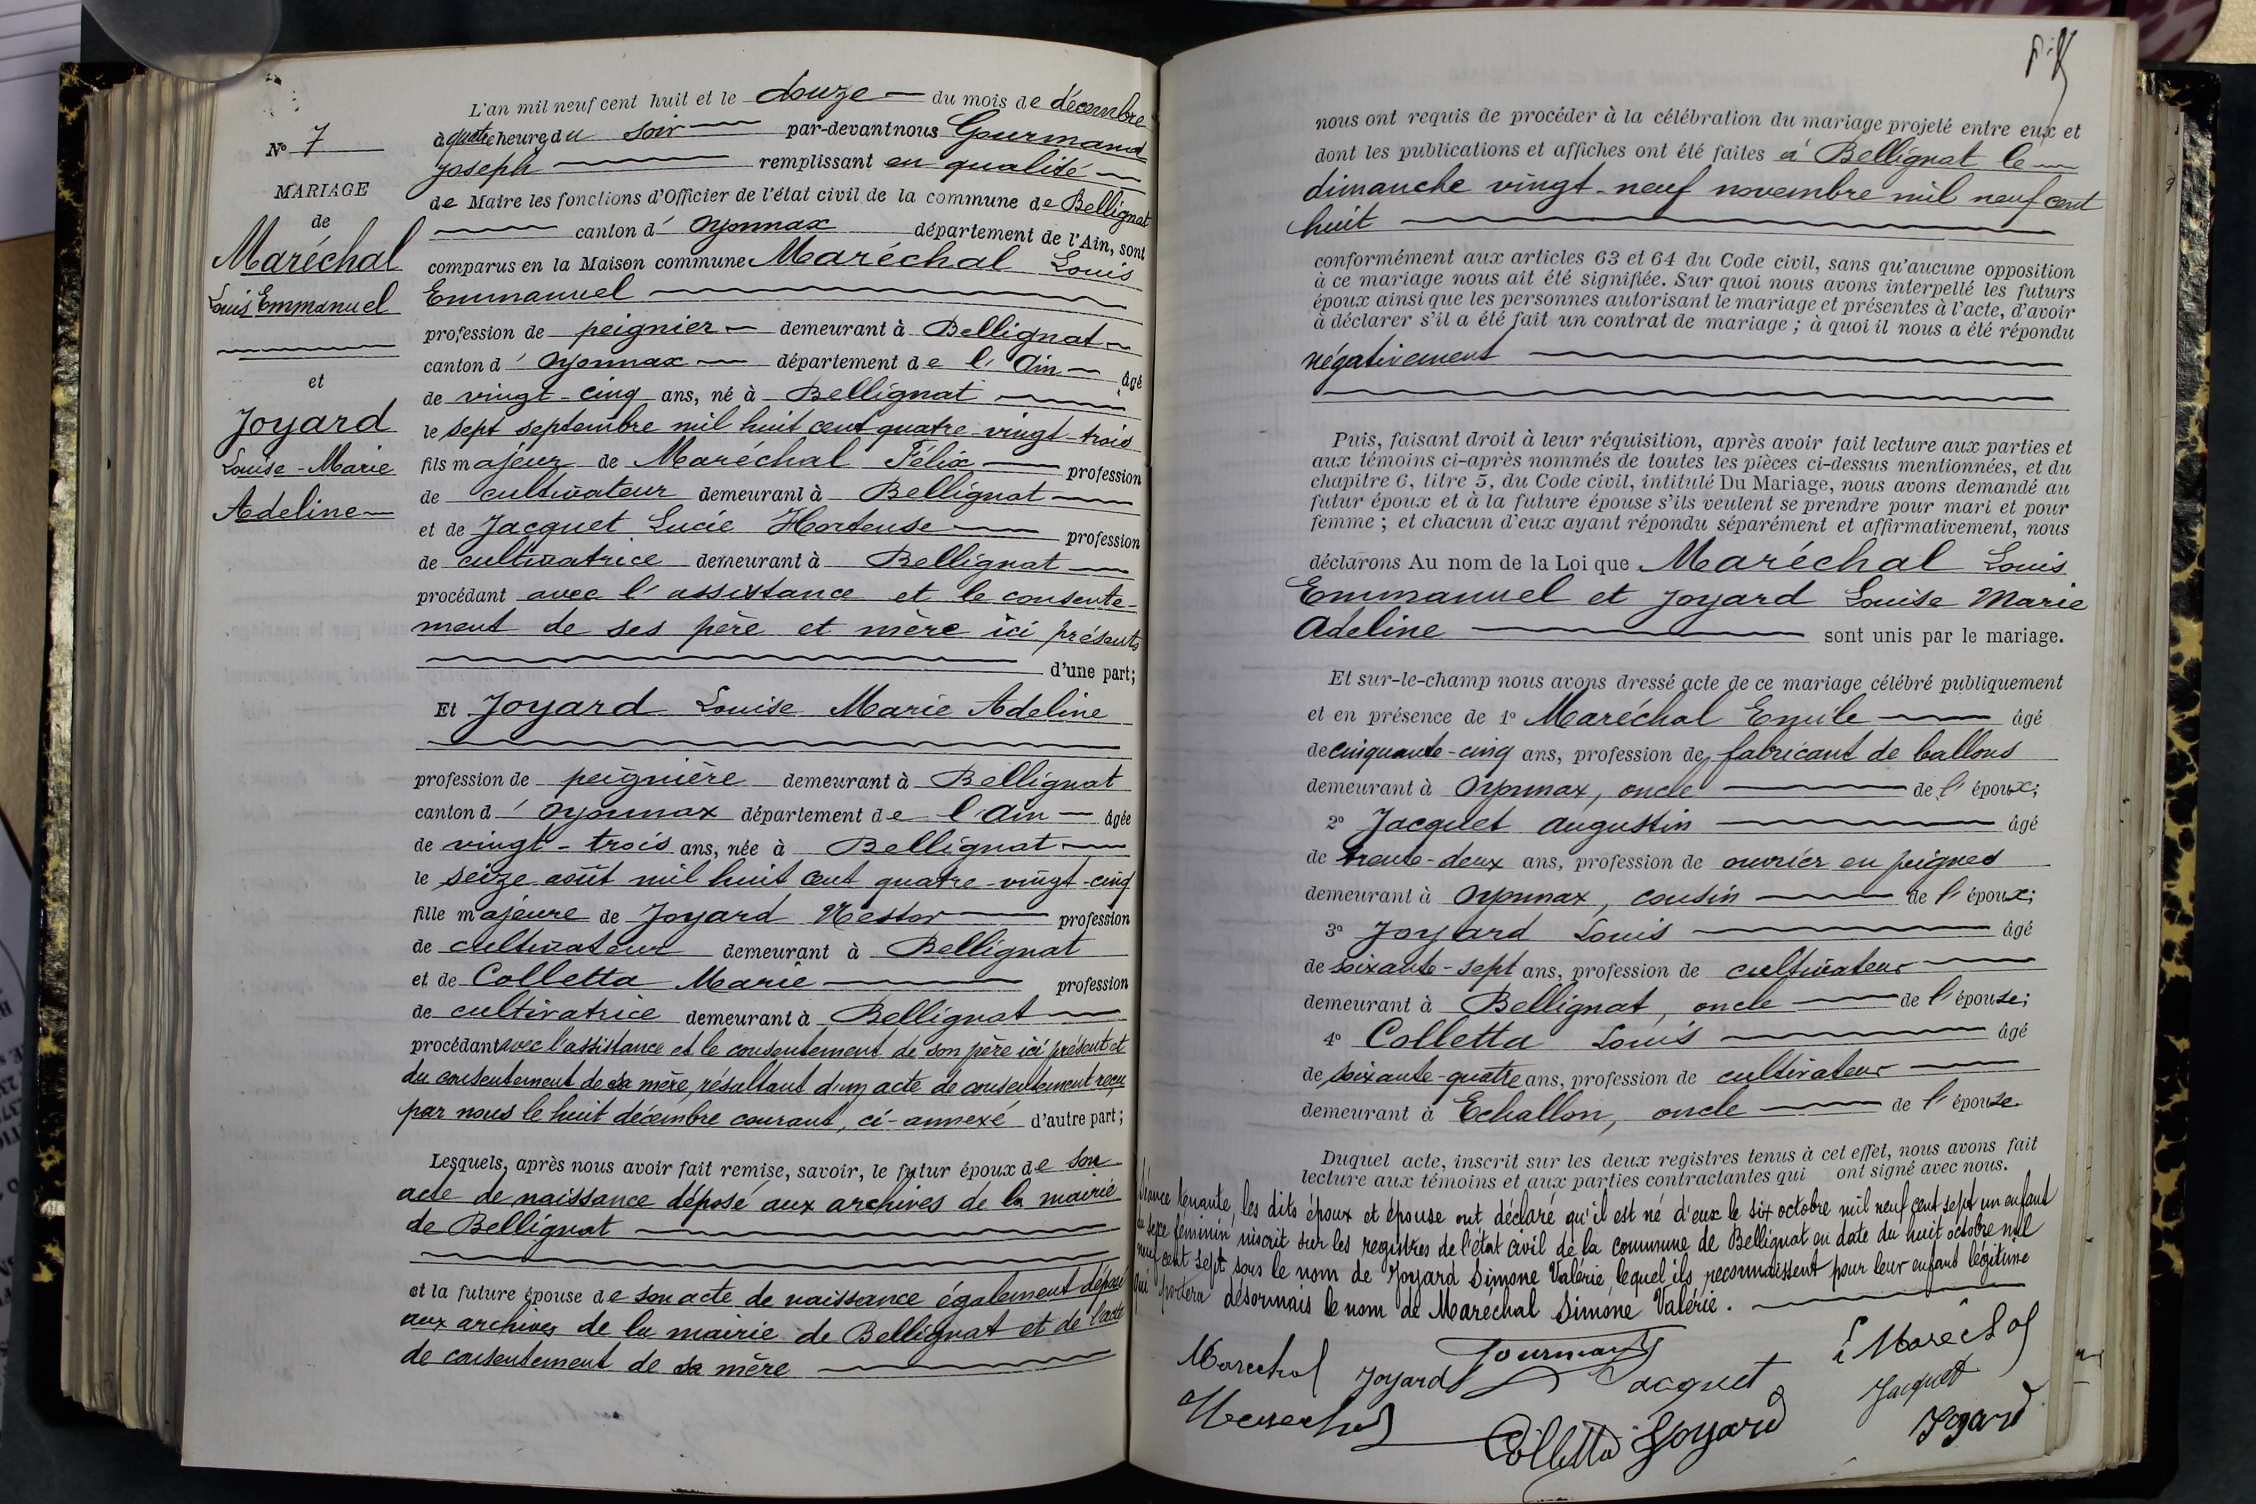 L'an mil neuf cent huit et le douze du mois de décembre
à quatre heures du soir par-devant nous Gourmand
Joseph remplissant en qualité
de Maire les fonctions d'Officier de l'état civil de la commune de Bellignat
canton d'Oyonnax département de l'Ain, sont
comparus en la Maison commune Maréchal Louis
Emmanuel
profession de peignier demeurant à Bellignat
canton d'Oyonnax département de l'Ain âgé
de vingt-cinq ans, né à Bellignat
le sept septembre mil huit cent quatre-vingt-trois
fils majeur de Maréchal Félix profession
de cultivateur demeurant à Bellignat
et de Jacquet Lucie Hortense profession
de cultivatrice demeurant à Bellignat
procédant avec l'assistance et le consente-
ment de ses père et mère ici présents
d'une part;
Et Joyard Louise Marie Adeline
profession de peignière demeurant à Bellignat
canton d'Oyonnax département de l'Ain âgée
de vingt-trois ans, née à Bellignat
le seize août mil huit cent quatre-vingt-cinq
fille majeure de Joyard Nestor profession
de cultivateur demeurant à Bellignat
et de Colletta Marie profession
de cultivatrice demeurant à Bellignat
procédant avec l'assistance et le consentement de son père ici présent et
du consentement de sa mère, résultant d'un acte de consentement reçu
par nous le huit décembre courant, ci-annexé d'autre part;
Lesquels, après nous avoir fait remise, savoir, le futur époux de son
acte de naissance déposé aux archives de la mairie
de Bellignat
et la future épouse de son acte de naissance également déposé
aux archives de la mairie de Bellignat et de l'acte
de consentement de sa mère
No 7
MARIAGE
de
Maréchal
Louis Emmanuel
et
Joyard
Louise-Marie
Adeline
nous ont requis de procéder à la célébration du mariage projeté entre eux et
dont les publications et affiches ont été faites à Bellignat le
dimanche vingt-neuf novembre mil neuf cent
huit
conformément aux articles 63 et 64 du Code civil, sans qu'aucune opposition
à ce mariage nous ait été signifiée. Sur quoi nous avons interpellé les futurs
époux ainsi que les personnes autorisant le mariage et présentes à l'acte, d'avoir
à déclarer s'il a été fait un contrat de mariage; à quoi il nous a été répondu
négativement
Puis, faisant droit à leur réquisition, après avoir fait lecture aux parties et
aux témoins ci-après nommés de toutes les pièces ci-dessus mentionnées, et du
chapitre 6, titre 5, du Code civil, intitulé Du Mariage, nous avons demandé au
futur époux et à la future épouse s'ils veulent se prendre pour mari et pour
femme; et chacun d'eux ayant répondu séparément et affirmativement, nous
déclarons Au nom de la Loi que Maréchal Louis
Emmanuel et Joyard Louise Marie
Adeline sont unis par le mariage.
Et sur-le-champ nous avons dressé acte de ce mariage célébré publiquement
et en présence de 1o Maréchal Emile âgé
de cinquante-cinq ans, profession de fabricant de ballons
demeurant à Oyonnax, oncle de l'époux;
2o Jacquet Augustin âgé
de trente-deux ans, profession de ouvrier en peignes
demeurant à Oyonnax, cousin de l'époux;
3o Joyard Louis âgé
de soixante-sept ans, profession de cultivateur
demeurant à Bellignat, oncle de l'épouse;
4o Colletta Louis âgé
de soixante-quatre ans, profession de cultivateur
demeurant à Echallon, oncle de l'épouse.
Duquel acte, inscrit sur les deux registres tenus à cet effet, nous avons fait
lecture aux témoins et aux parties contractantes qui ont signé avec nous.
Séance tenante, les dits époux et épouse ont déclaré qu'il est né d'eux le six octobre mil neuf cent sept un enfant
du sexe féminin inscrit sur les registres de l'état civil de la commune de Bellignat en date du huit octobre mil
neuf cent sept sous le nom de Joyard Simone Valérie lequel ils reconnaissent pour leur enfant légitime
qui portera désormais le nom de Maréchal Simone Valérie.
Marechal Joyard Gourmand Jacquet L Maréchal
Marechal Colletta Joyard Jacquet Joyard